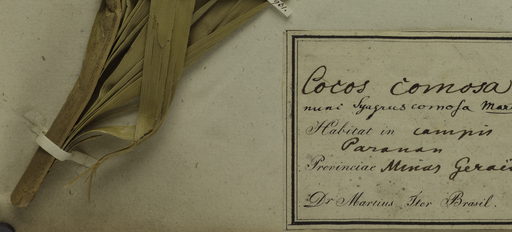 Cocos comosa
nunc Syagrus comosa Mar
Habitat in campis
Paranan
Provinciae Minas Geraë
Dr Martius Iter Brasil.